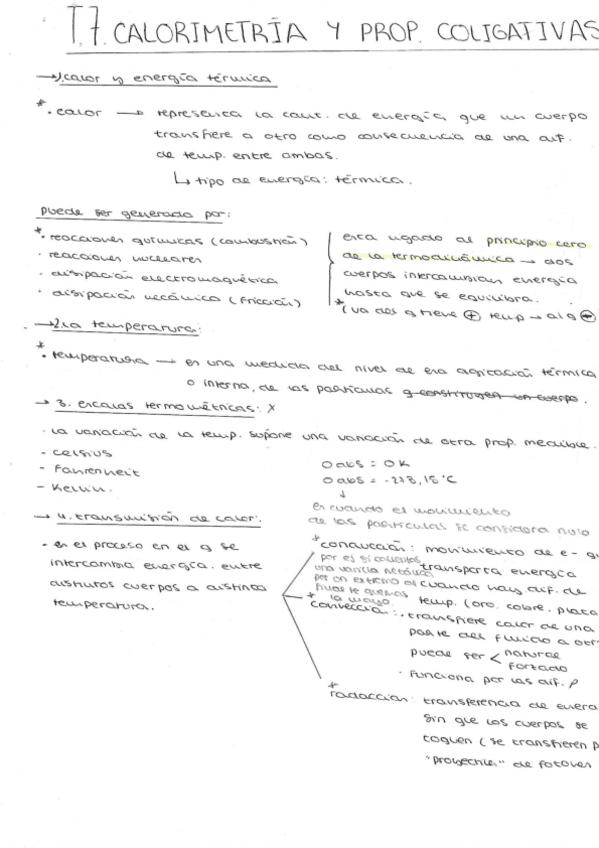 T.7. CALORIMETRÍA Y PROP. COLIGATIVAS
→ 1. calor y energía térmica
* . calor → representa la cant. de energía que un cuerpo
transfiere a otro como consecuencia de una dif.
de temp. entre ambas.
↳ tipo de energía: térmica.
puede ser generado por:
* . reacciones químicas (combustión)
. reacciones nucleares
. disipación electromagnética
. disipación mecánica (fricción)
esta ligado al principio cero
de la termodinámica → dos
cuerpos intercambian energía
hasta que se equilibra.
* (va del q tiene + temp → al q -
→ 2. la temperatura:
* . temperatura → es una medida del nivel de esa agitación térmica
o interna, de las partículas q constituyen un cuerpo.
→ 3. escalas termométricas: X
. la variación de la temp. supone una variación de otra prop. medible.
- Celsius
- Fahrenheit
- Kelvin.
0 abs = 0 K
0 abs = -273,15 °C
↓
es cuando el movimiento
de las partículas se considera nulo
→ 4. transmisión de calor:
. es el proceso en el q se
intercambia energía. entre
distintos cuerpos a distinta
temperatura.
* conducción: movimiento de e- q
transporta energía
cuando hay dif. de
temp. (oro, cobre, plata
por ej si calientas
una varilla metálica
por un extremo al
la mano.
* convección: . transfiere calor de una
parte del fluido a otr
puede ser < natural
forzado
. funciona por las dif. ρ
* radiación: transferencia de energ
sin que los cuerpos se
toquen (se transfieren p
"proyectiles" de fotones